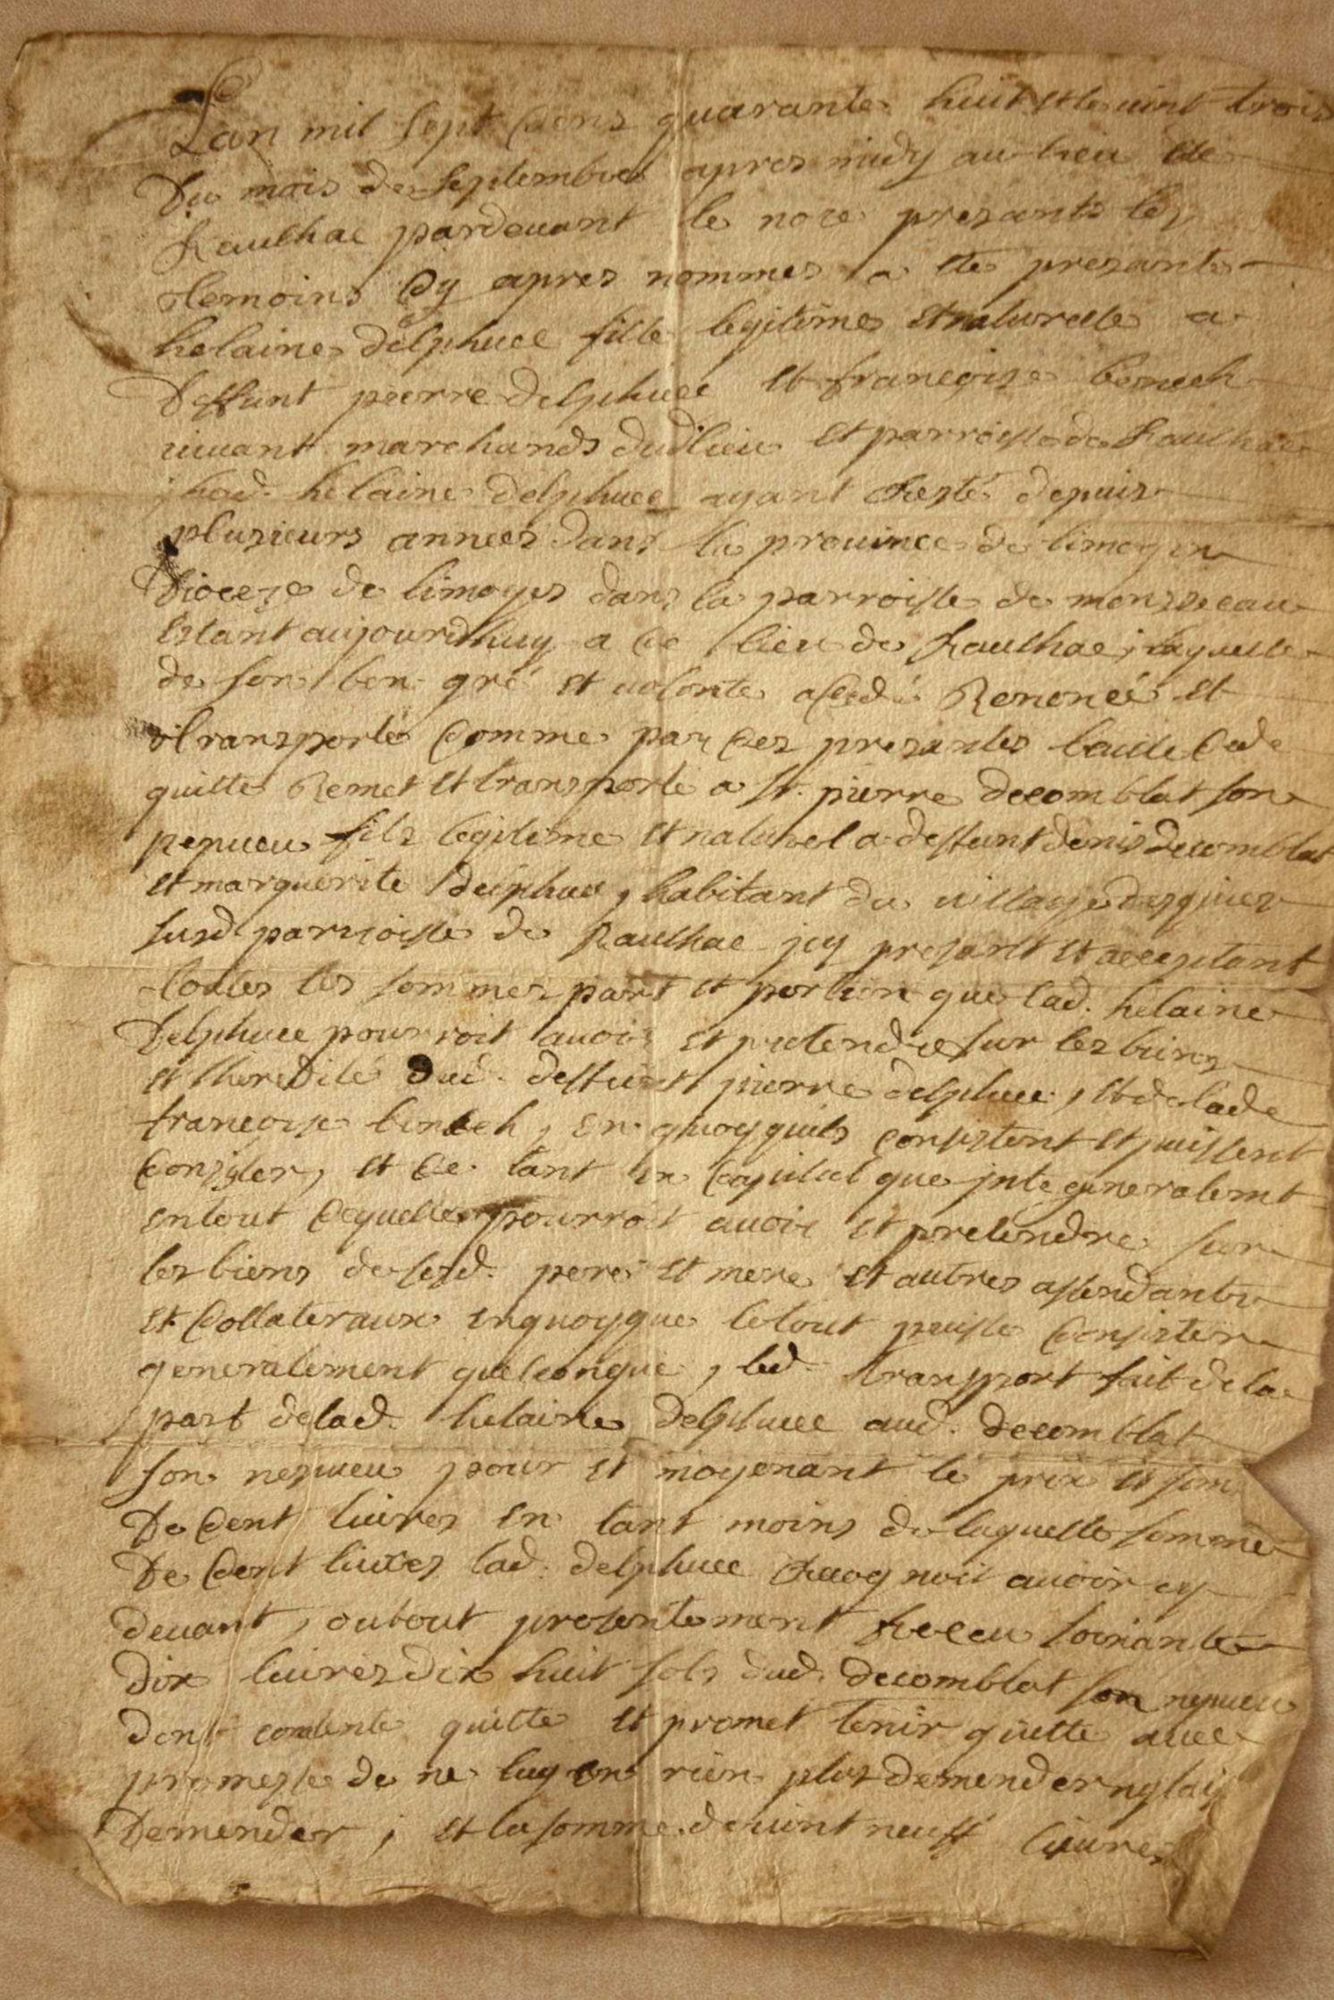 Lan mil sept Cens quarante huit et le vint trois
Du mois de Septembre apres midy au lieu de
Raulhac pardevant le nore presants les
temoins Cy apres nommes a ete presante
helaine delphuec fille legitime et naturelle a
Deffunt pierre delphuec et francoize
vivant marchands dud lieu et parroisse de Raulhac
helaine delphuec ayant Resté depuis
plusieurs annees dans la province de limogen
Dioceze de limoges dans la parroisse de
Estant aujourdhuy a Ce lieu de Raulhac, laquelle
de son bon gré et volonte a Cedé Renoncé et
transporté Comme par Ces presantes baille Cede
quitte Remet et transporte a Sr. pierre decomblat son
nepveu fils legitime et naturel a deffunt denis decomblat
et marguerite delphuec, habitant du village
susd parroisse de Raulhac jcy presant et acceptant
toutes les sommes part et portion que lad. helaine
Delphuec pourroit avoir et pretendre sur les biens
et lheredité dud. deffunt pierre delphuec, et de lade
francoise , en quoy quils consistent et puissent
Consister, et Ce tant en Capital que jnte generalemt
en tout Cequelle pourroit avoir et pretendre sur
les biens de sesd. pere et mere et autres assendants
et Collateraux en quoy que le tout puisse Consister
generalement quelconque, led. transport fait de la
part de lad. helaine delphuec aud. decomblat
son nepveu pour et moyenant le prix et som
De Cent livres en tant moins de laquelle somme
De Cent livres lad. delphuec Recognoit avoir cy
devant, ou tout presentement Receu soixante
dix livres dix huit sols dud. decomblat son nepveu
dont contente quitte et promet tenir quitte avec
promesse de ne luy en rien plus demender ny faire
Demender, et la somme de vint neuf livres